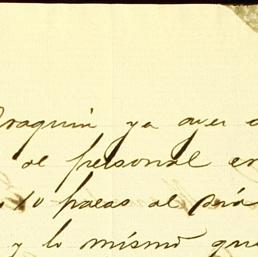 Joaquin ya ayer
al personal en
10 pacas al día
y lo mismo que